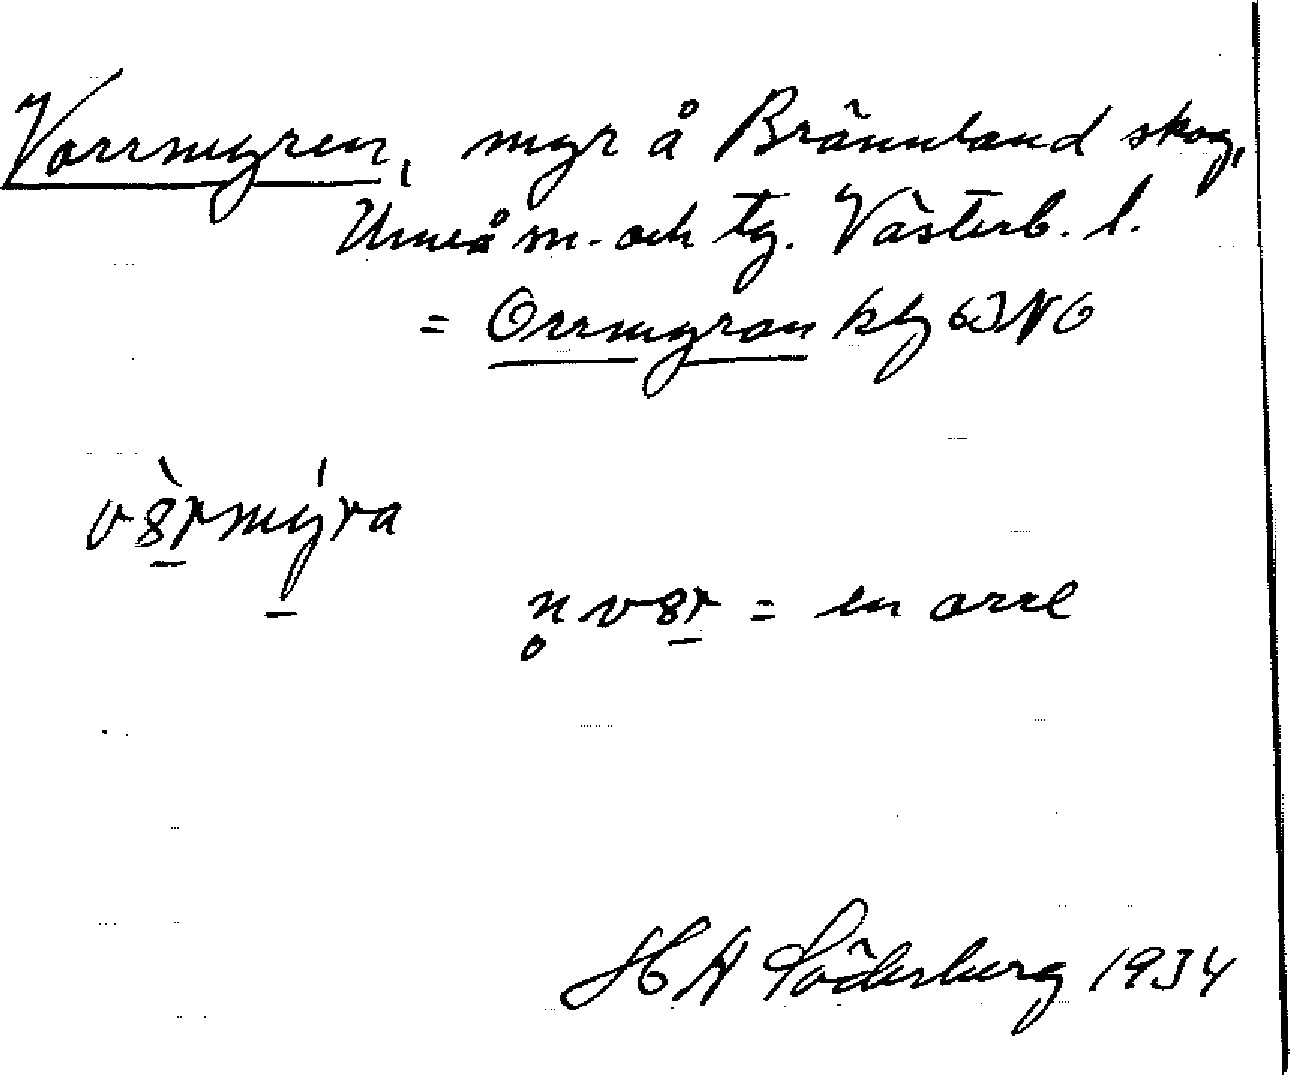 Vorrmyren, myr å Brännland skog,
Umeå m- och tg. Västerb. l.
= Orrmyran kbl 63 NO
v8̀rmýra
n̥ v8r = en orre
H A Söderberg 1934